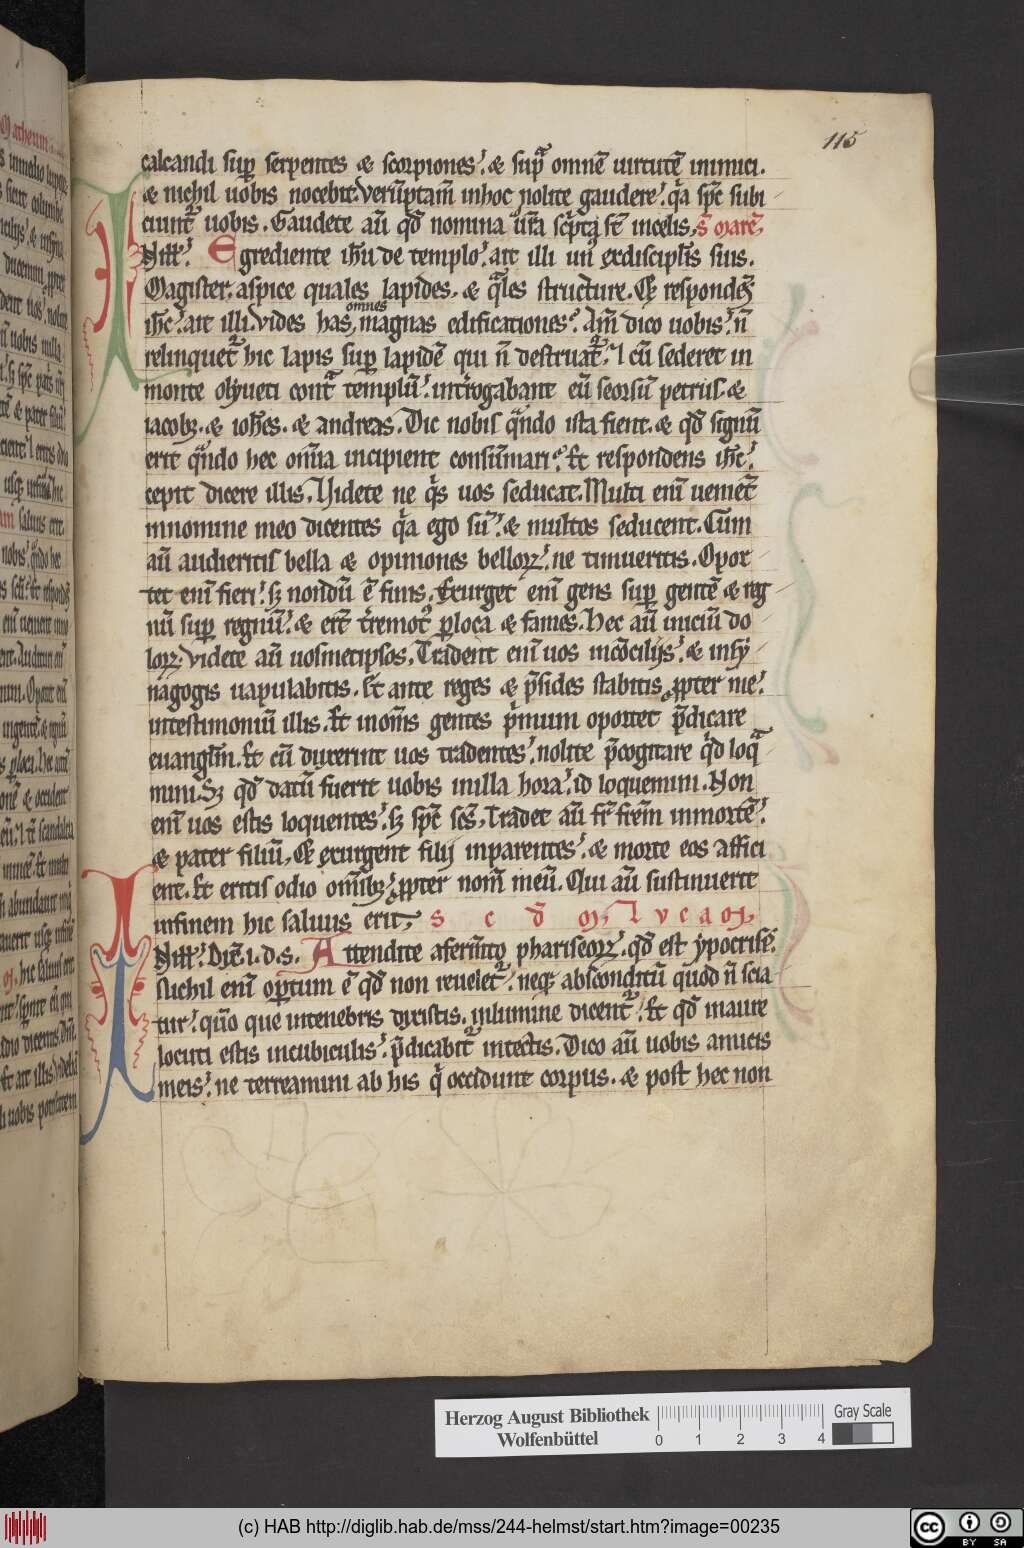 115
calcandi sup̱ serpentes & scorpiones. & supͣ omnē uirtutē inimici.
& nichil uobis nocebit. Verūptam̄ inhoc nolite gaudere. qͣa sp̄c subi
ciuntͬ uobis. Gaudete aū qd̄ nomina ur̄a scͥpta st̄ incelis. S̄ marc̄
In illͦ. Egrediente ih̄u de templo. ait illi un̄ exdiscipl̄is suis.
Magister. aspice quales lapides. & qͣles structure. Et respondēs
ih̄c. ait illi. Vides has omnes magnas edificationes. Am̄ dico uobis. n̄
relinquetͬ hic lapis sup̱ lapidē qui n̄ destruatͬ. I cū sederet in
monte olyueti contͣ templū. int̄rogabant eū seorsū petrus. &
iacobꝫ. & ioh̄es. & andreas. Dic nobis qͣndo ista fient. & qd̄ signū
erit qͣndo hec om̄ia incipient consūmari. Et respondens ih̄c.
cepit dicere illis. Videte ne qͥs uos seducat. Multi eni̅ uenient̄
innomine meo dicentes qͣa ego sū. & multos seducent. Cūm
aū audieritis bella & opiniones belloꝝ. ne timueritis. Opor
tet eni̅ fieri. sꝫ nondū ē finis. Exurget eni̅ gens sup̱ gentē & reg
nū sup̱ regnū. & ert̄ t̄remotꝰ ploca & fames. Hec aū iniciū do
loꝝ. Videte aū uosmetipsos. Tradent eni̅ uos incōcilijs. & insy
nagogis uapulabitis. Et ante reges & p̄sides stabitis ꝓpter me.
intestimoniū illis. Et inom̄s gentes pͥmum oportet p̄dicare
euanglīm. Et cū duxerint uos tradentes. nolite p̄cogitare qͥd loqͣ
mini. Sꝫ qd̄ datū fuerit uobis inilla hora. id loquemini. Non
eni̅ uos estis loquentes. sꝫ sp̄c sc̄s. Tradet aū fr̄ frēm inmortē.
& pater filiū. Et exurgent filij inparentes. & morte eos affici
ent. Et eritis odio om̄ibꝫ. ꝓpter nom̄ meū. Qui aū sustinuerit
infinem hic saluus erit. S c d̄ m̄ l v c a m̄
In illͦ. Dix̄. i. d. s. Attendite afermt̄o phariseoꝝ. qd̄ est ypocrisis̄.
Nichil eni̅ optum ē qd̄ non reueletͬ. neqꝫ absconditū quod n̄ scia
tur. qm̄o que intenebris dixistis. inlumine dicentͬ. Et qd̄ inaure
locuti estis incubiculis. p̄dicabit̄ intectis. Dico aū uobis amicis
meis. ne terreamini ab his qͥ occidunt corpus. & post hec non
Herzog August Bibliothek
Wolfenbüttel
0 1 2 3 4
Gray Scale
(c) HAB http://diglib.hab.de/mss/244-helmst/start.htm?image=00235
cc BY SA